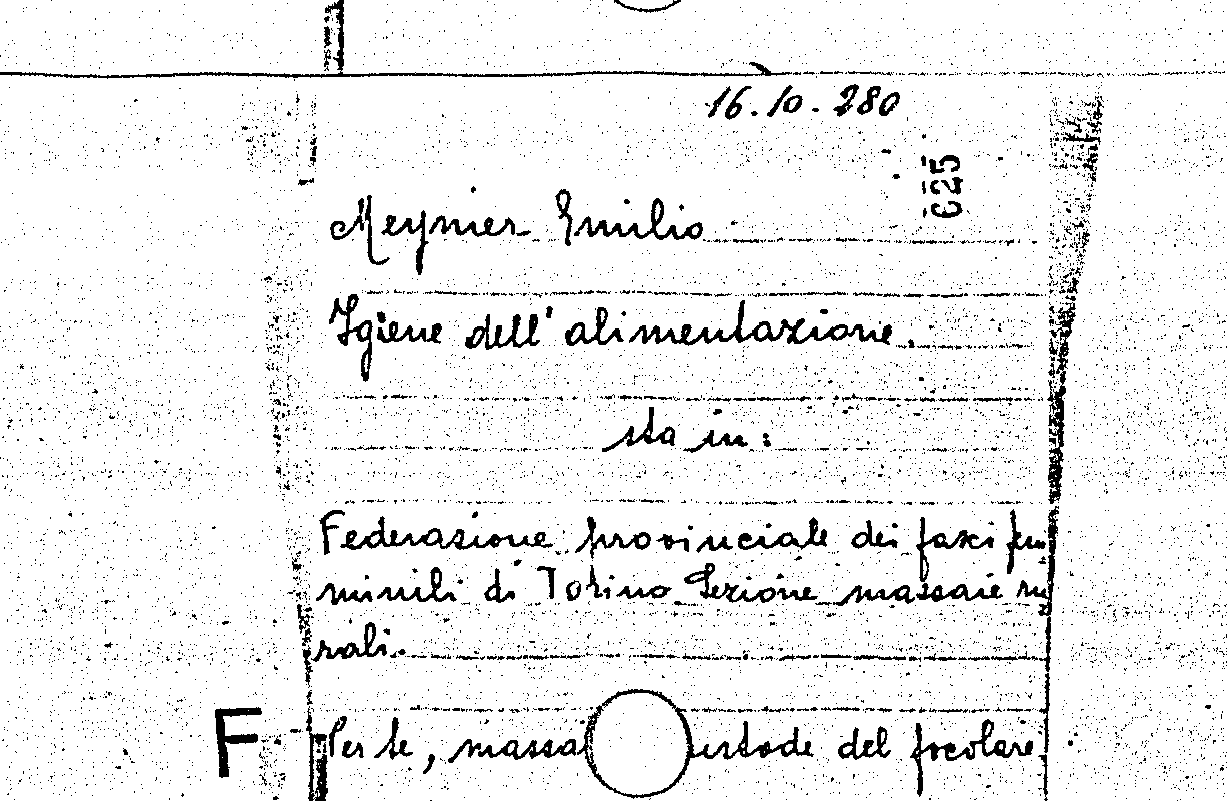 16.10.280
625
Meynier Emilio
Igiene dell'alimentazione.
sta in:
Federazione provinciale dei fasci fem
minili di Torino Sezione massaie ru
rali.
F
Per te, massa ustode del focolare